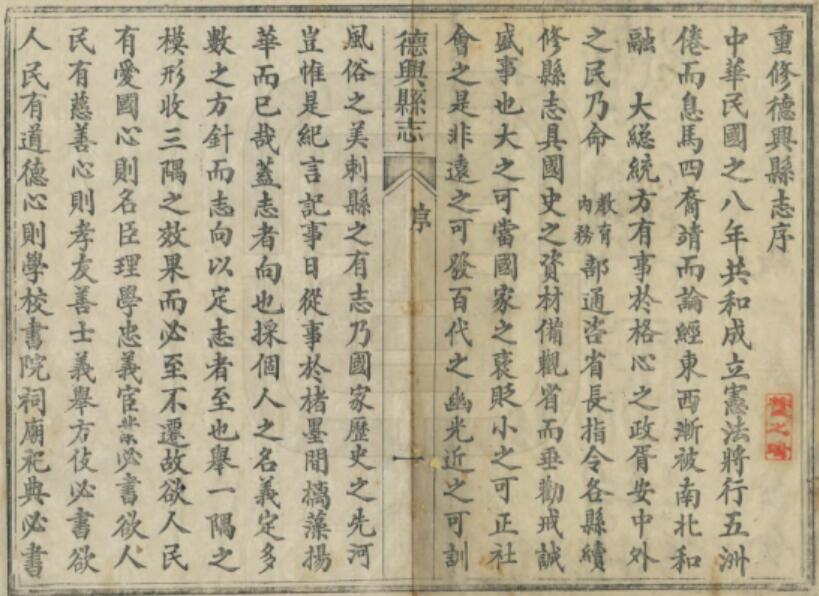 重修德興縣志序
中華民國之八年共和成立憲法將行五洲
倦而息馬四裔靖而論經東西漸被南北和
融　大總統方有事於格心之政胥安中外
之民乃命教育內務部通咨省長指令各縣續
修縣志具國史之資材備觀省而垂勸戒誠
盛事也大之可當國家之褒貶小之可正社
會之是非遠之可發百代之幽光近之可訓
德興縣志　序　一
風俗之美刺縣之有志乃國家歷史之先河
豈惟是紀言記事日從事於楮墨間摛藻揚
華而已哉蓋志者向也採個人之名義定多
數之方針而志向以定志者至也舉一隅之
模形收三隅之效果而必至不遷故欲人民
有愛國心則名臣理學忠義宦業必書欲人
民有慈善心則孝友善士義舉方伎必書欲
人民有道德心則學校書院祠廟祀典必書